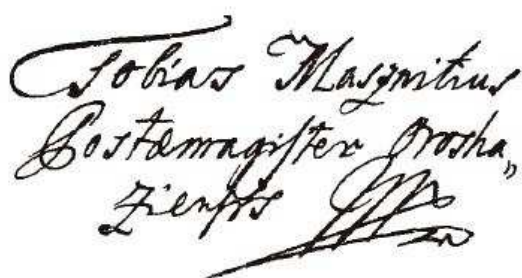 Tobias Masznitius
Postæmagister Prosha„
ziensis